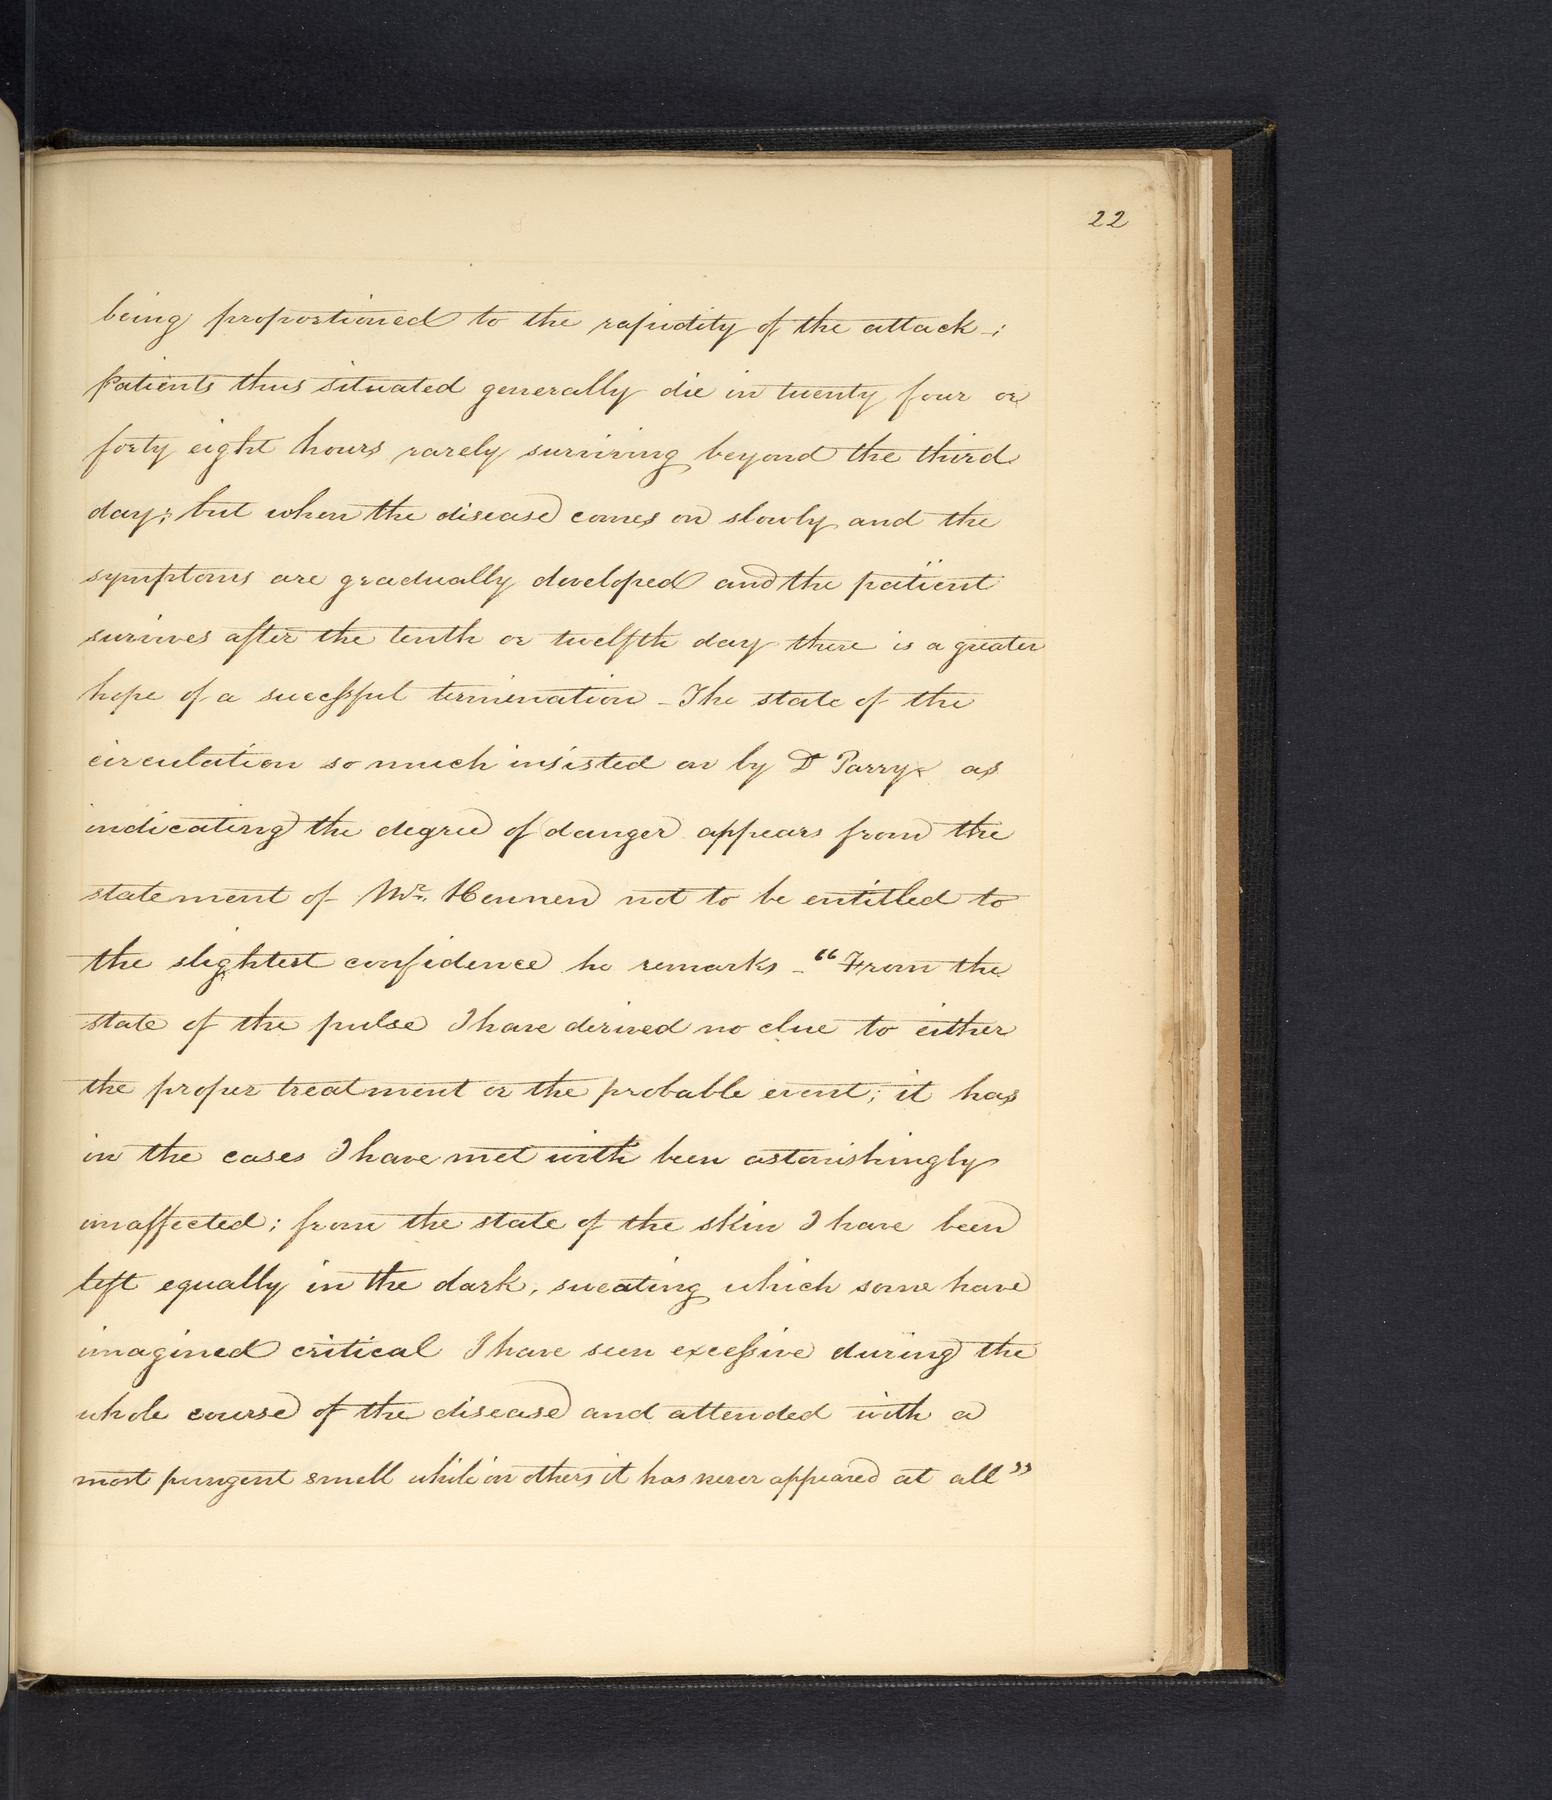 22
being proportioned to the rapidity of the attack-;
Patients thus situated generally die in twenty four or
forty eight hours rarely surviving beyond the third
day; but when the disease comes on slowly and the
symptoms are gradually developed and the patient
survives after the tenth or twelfth day there is a greater
hope of a sucessful termination - The state of the
circulation so much insisted on by Dr Parry as
indicating the degree of danger appears from the
statement of Mr. Hennen not to be entitled to
the slightest confidence he remarks - "From the
state of the pulse I have derived no clue to either
the proper treatment or the probable event; it has
in the cases I have met with been astonishingly
unaffected; from the state of the skin I have been
left equally in the dark, sweating which some have
imagined critical I have seen excessive during the
whole course of the disease and attended with a
most pungent smell while in others it has never appeared at all"